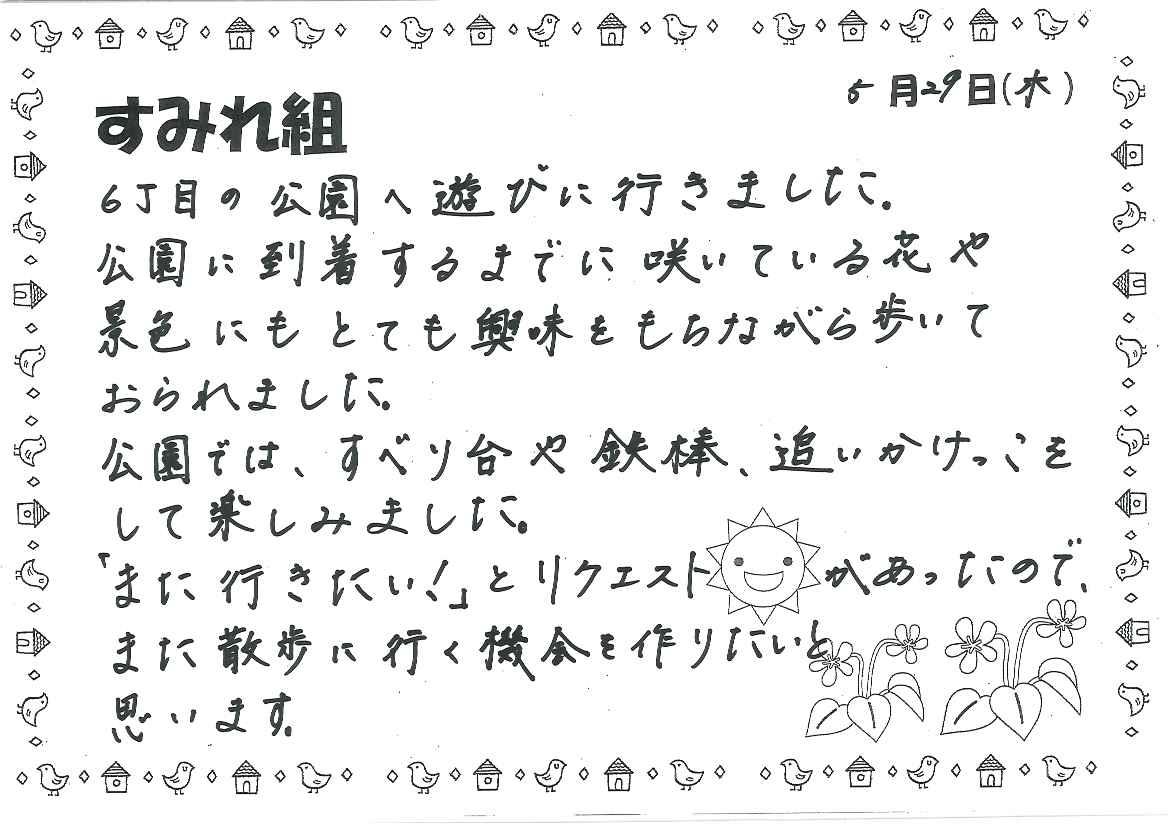 5月29日(木)
すみれ組
6丁目の公園へ遊びに行きました。
公園に到着するまでに咲いている花や
景色にもとても興味をもちながら歩いて
おられました。
公園では、すべり台や鉄棒、追いかけっこを
して楽しみました。
「また行きたい!」とリクエストがあったので、
また散歩に行く機会を作りたいと
思います。